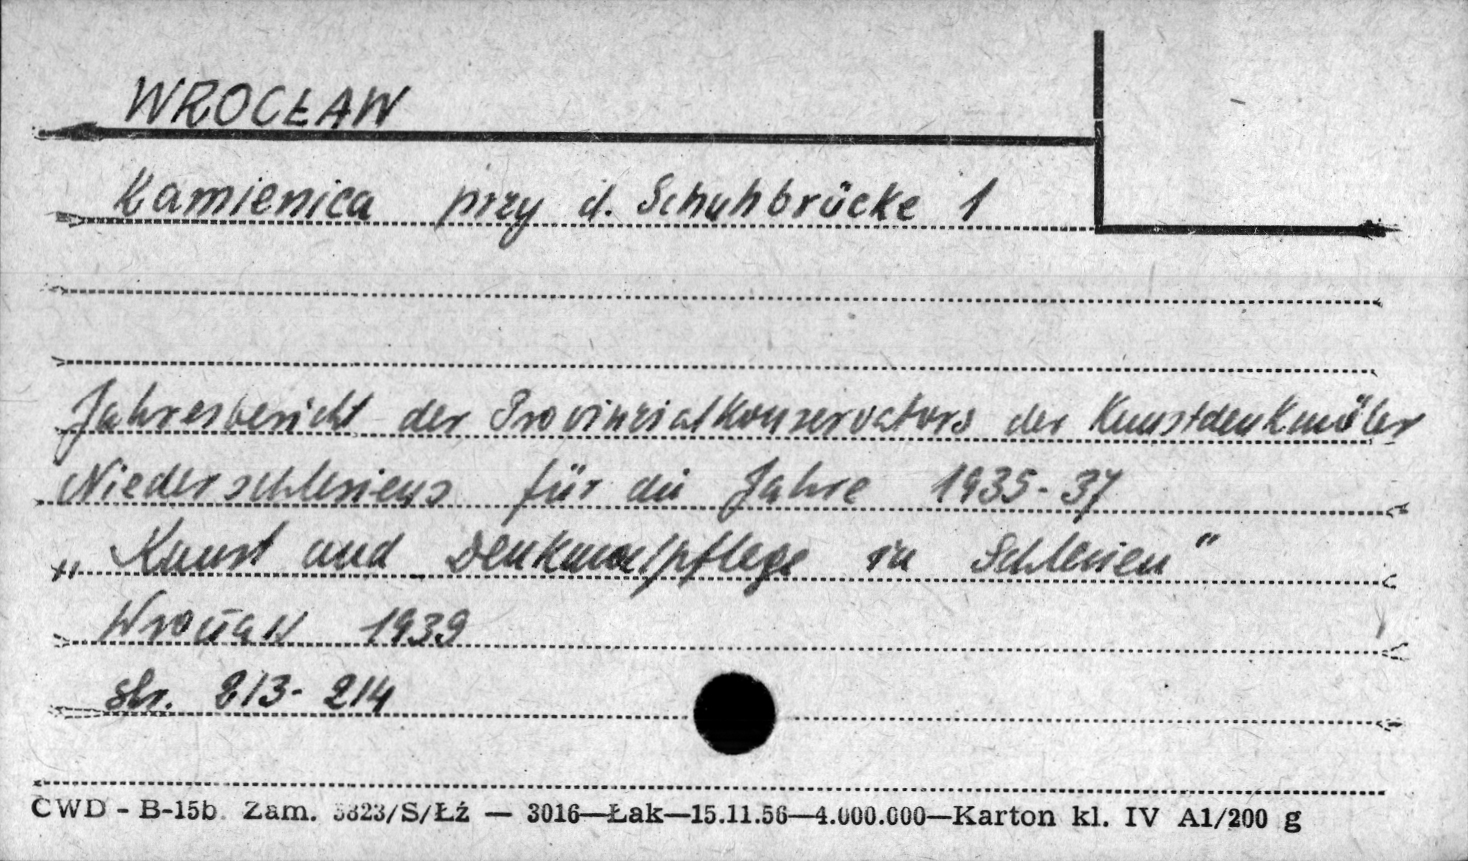 WROCŁAW
Kamienica przy d. Schuhbrücke 1
Jahresbericht der Provinzialkonservators der Kunstdenkmäler
Niederschlesiens für die Jahre 1935-37
„Kunst und Denkmalpflege in Schlesien"
Wrocław 1939
str. 213-214
CWD - B-15b. Zam. 5823/S/Łź — 3016—Łak—15.11.56—4.000.000—Karton kl. IV A1/200 g